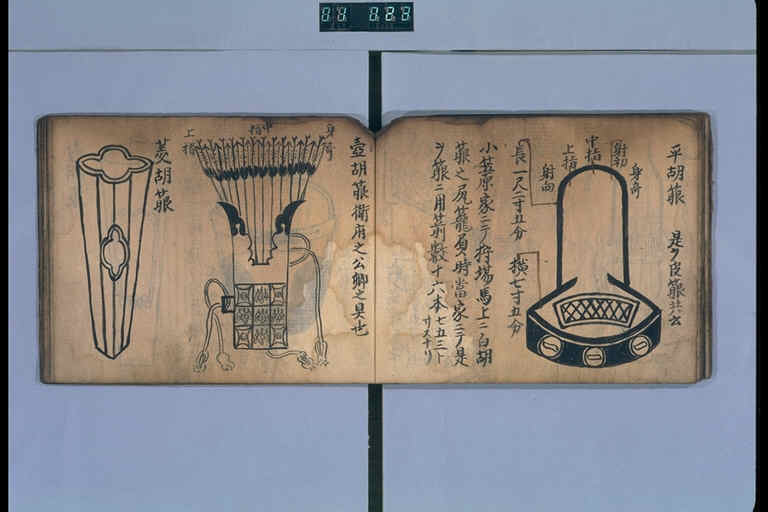 平胡簶 是ヲ皮簶共云
身寄
射初
中指
上指
射向
長一尺二寸五分 横七寸五分
小笠原家ニテ狩場馬上ニ白胡
簶之尻籠 時當家ニテ是
ヲ簶ニ用箭數十六本七五三ト
サスナリ
壺胡簶衛府之公卿之具也
身寄
中指
上指
菱胡簶